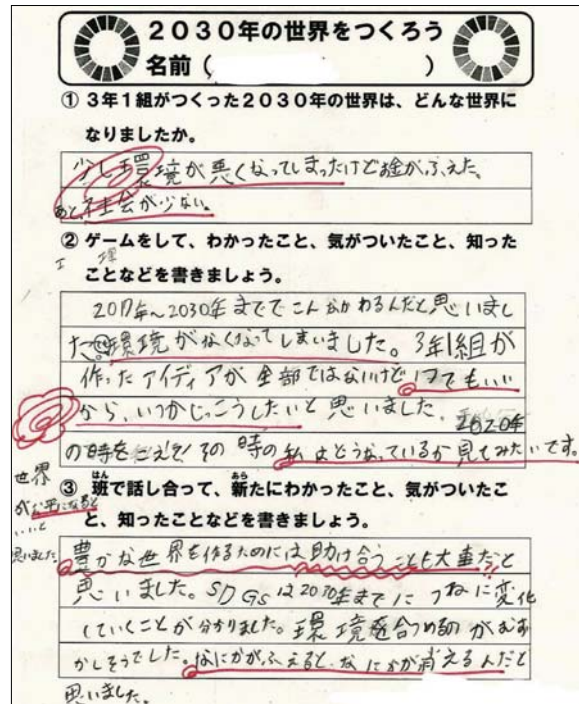 2030年の世界をつくろう
名前（ ）
① 3年1組がつくった2030年の世界は、どんな世界に
なりましたか。
少し環境が悪くなってしまったけどお金がふえた。
あと、社会が少ない。
② ゲームをして、わかったこと、気がついたこと、知った
ことなどを書きましょう。
2017年〜2030年まででこんなかわるんだと思いまし
た。環境がなくなってしまいました。3年1組が
作ったアイディアが全部ではないけど1つでもいい
から、いつかじっこうしたいと思いました。
の時をこえて、その時の私はどうなっているか見てみたいです。
世界
が公平になると
いいと
思いました。
③ 班で話し合って、新たにわかったこと、気がついたこ
はん あら
と、知ったことなどを書きましょう。
豊かな世界を作るためには助け合うことも大事だと
思いました。SDGsは2030年までにつねに変化
していくことが分かりました。環境を合つめるのがむず
かしそうでした。なにかがふえると、なにかが消えるんだと
思いました。